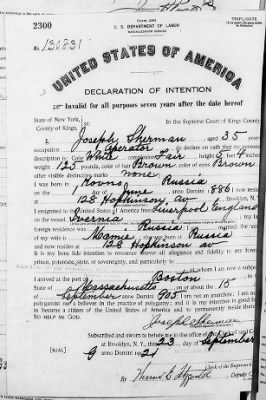 Form 2203
U. S. DEPARTMENT OF LABOR
NATURALIZATION SERVICE
TRIPLICATE
2300
No. 130831
UNITED STATES OF AMERICA
DECLARATION OF INTENTION
Invalid for all purposes seven years after the date hereof
State of New York,
County of Kings,
In the Supreme Court of Kings County
I, Joseph Sherman, aged 35 years,
occupation Operator, do declare on oath that my personal
description is: Color White, complexion Fair, height 5 feet inches,
weight 125 pounds, color of hair Brown, color of eyes Brown
other visible distinctive marks none
I was born in Rovno, Russia
on the day of June, anno Domini 1886; I now reside
at 128 Hopkinson av
I emigrated to the United States of America from Liverpool England
on the vessel Ivernia; my last
foreign residence was Russia; I am married; the name
of my wife is Mamie; she was born at Russia
and now resides at 128 Hopkinson av
It is my bona fide intention to renounce forever all allegiance and fidelity to any foreign
prince, potentate, state, or sovereignty, and particularly to
of whom I am now a subject;
I arrived at the port of Boston
State of Massachusetts, on or about the 15 day
of September, anno Domini 1905; I am not an anarchist; I am not a
polygamist nor a believer in the practice of polygamy; and it is my intention in good faith
to become a citizen of the United States of America and to permanently reside therein:
SO HELP ME GOD.
Joseph Sherman
Subscribed and sworn to before me in the office of the Clerk of said Court
at Brooklyn, N. Y., this 23 day of September
anno Domini 1921
[SEAL]
Clerk of the Supreme Court
By